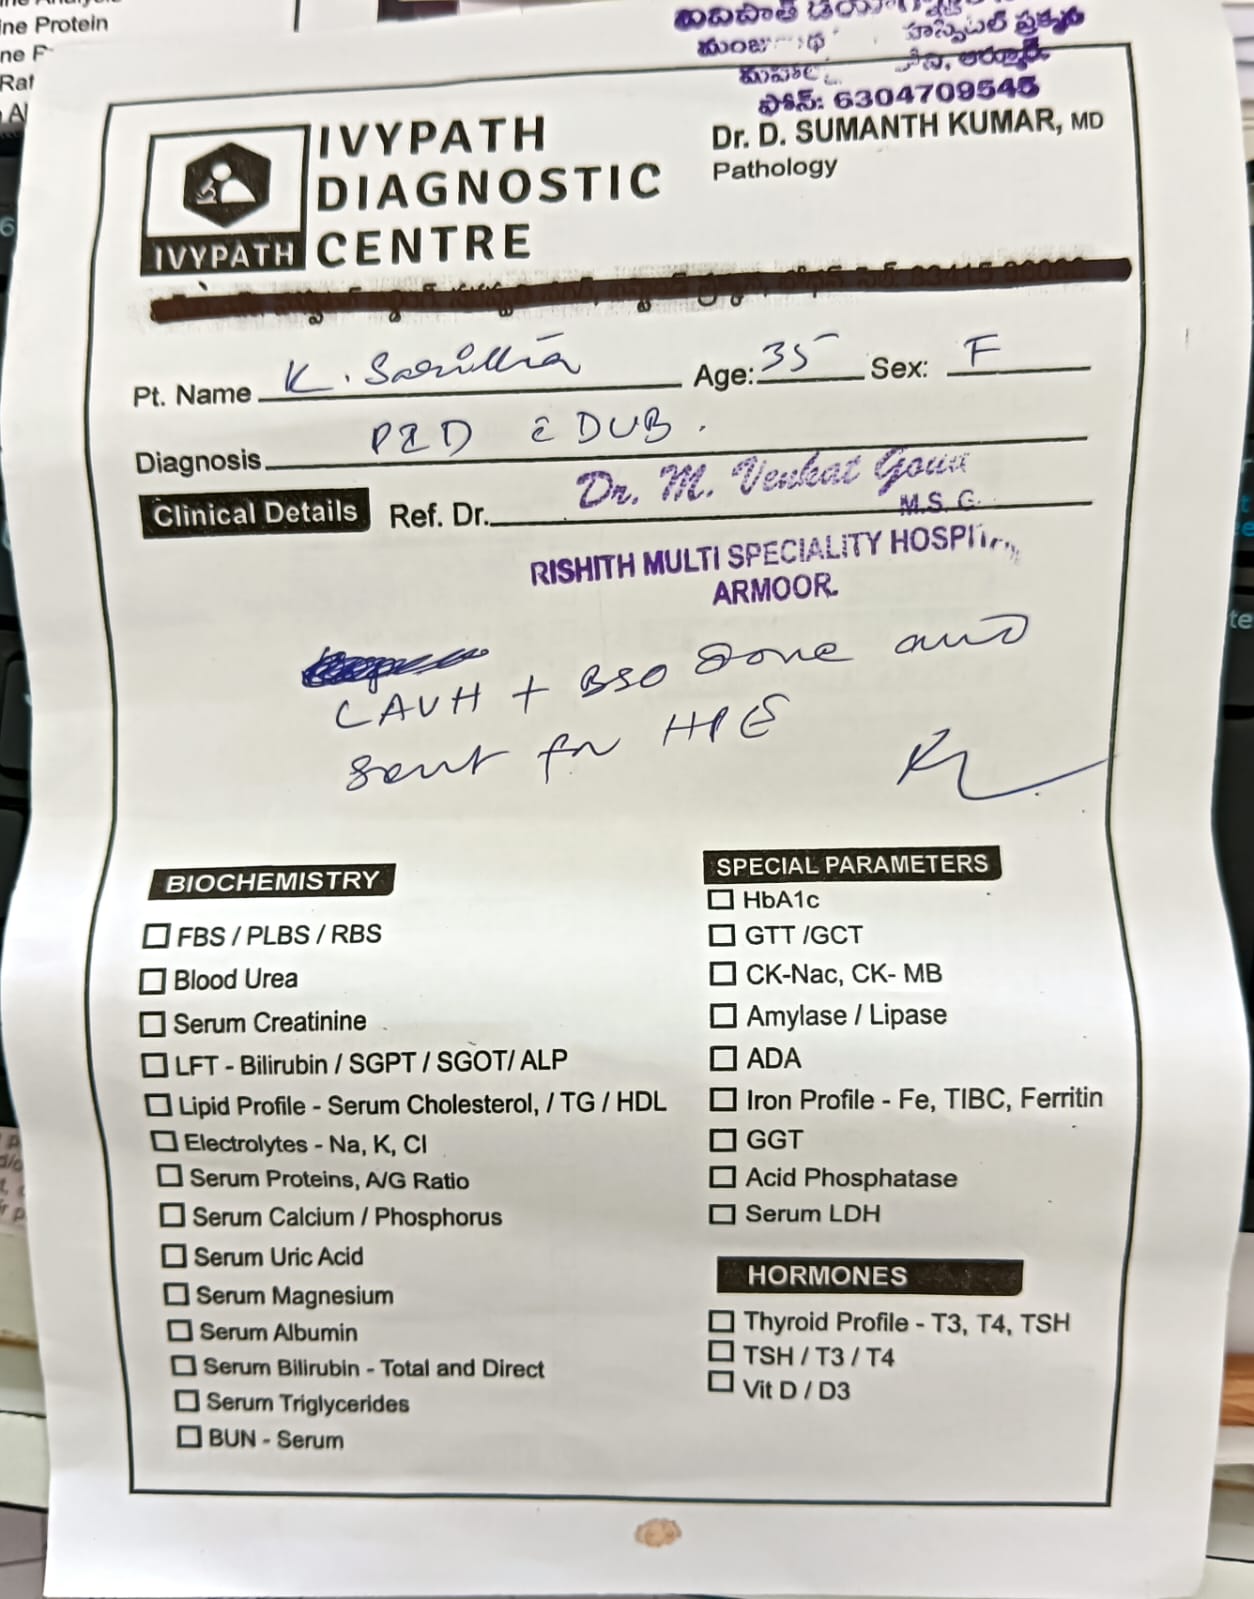 ine Protein
IVYPATH
DIAGNOSTIC
CENTRE
IVYPATH
హాస్పిటల్ ప్రక్కన
ఫోన్: 6304709545
Dr. D. SUMANTH KUMAR, MD
Pathology
Pt. Name K. Age: 35 Sex: F
Diagnosis PID c̄ DUB.
Clinical Details Ref. Dr. Dr. M. Venkat Goud
M.S. G.
RISHITH MULTI SPECIALITY HOSPITAL
ARMOOR.
LAVH + BSO done and
sent for HPE
BIOCHEMISTRY
FBS / PLBS / RBS
Blood Urea
Serum Creatinine
LFT - Bilirubin / SGPT / SGOT/ ALP
Lipid Profile - Serum Cholesterol, / TG / HDL
Electrolytes - Na, K, Cl
Serum Proteins, A/G Ratio
Serum Calcium / Phosphorus
Serum Uric Acid
Serum Magnesium
Serum Albumin
Serum Bilirubin - Total and Direct
Serum Triglycerides
BUN - Serum
SPECIAL PARAMETERS
HbA1c
GTT /GCT
CK-Nac, CK- MB
Amylase / Lipase
ADA
Iron Profile - Fe, TIBC, Ferritin
GGT
Acid Phosphatase
Serum LDH
HORMONES
Thyroid Profile - T3, T4, TSH
TSH / T3 / T4
Vit D / D3